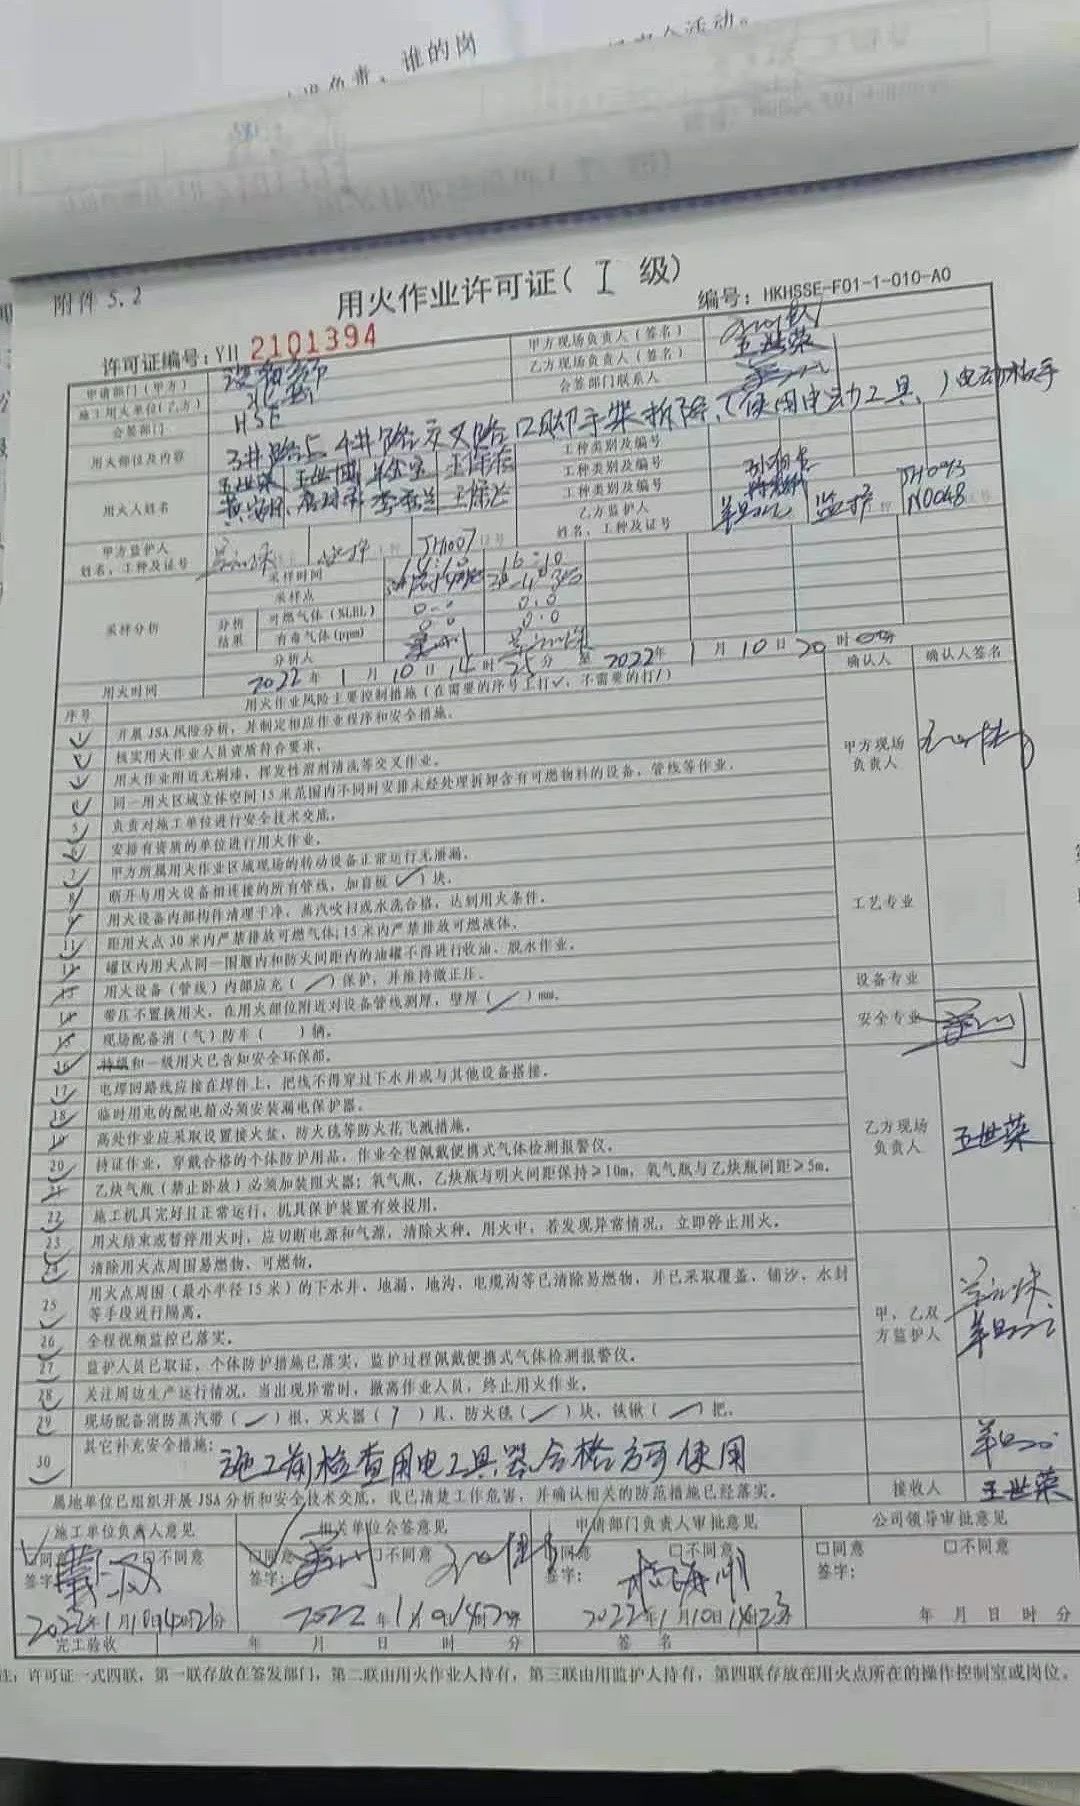 负责，谁的岗
人活动。
附件 5.2
用火作业许可证（ I 级）
编号：HKHSSE-F01-1-010-A0
许可证编号：YH 2101394
甲方现场负责人（签名）
申请部门（甲方）
乙方现场负责人（签名） 王世荣
施工用火单位（乙方）
会签部门联系人
会签部门 HSE
用火部位及内容 3#路与4#路交叉路口脚手架拆除（使用电动工具）电动扳手
工种类别及编号
工种类别及编号
用火人姓名 王世荣
工种类别及编号
甲方监护人
姓名、工种及证号 监护 JH007
乙方监护人
姓名、工种及证号 监护 N0048
采样分析
采样时间 14:10 16:10
采样点
分析结果
可燃气体（%LEL） 0.0 0.0
有毒气体（ppm） 0.0 0.0
分析人
用火时间 2022 年 1 月 10 日 14 时 25 分 至 2022年 1 月 10 日 20 时 分
序号 用火作业风险主要控制措施（在需要的序号上打√，不需要的打/） 确认人 确认人签名
1 开展 JSA 风险分析，并制定相应作业程序和安全措施。
核实用火作业人员资质符合要求。
用火作业附近无刷漆，挥发性溶剂清洗等交叉作业。
甲方现场负责人
同一用火区域立体空间 15 米范围内不同时安排未经处理拆卸含有可燃物料的设备、管线等作业。
5 负责对施工单位进行安全技术交底。
6 安排有资质的单位进行用火作业。
7 甲方所属用火作业区域现场的转动设备正常运行无泄漏。
8 断开与用火设备相连接的所有管线，加盲板（ ）块。
用火设备内部构件清理干净，蒸汽吹扫或水洗合格，达到用火条件。
工艺专业
11 距用火点 30 米内严禁排放可燃气体；15 米内严禁排放可燃液体。
罐区内用火点同一围堰内和防火间距内的油罐不得进行收油、脱水作业。
13 用火设备（管线）内部应充（ / ）保护，并维持微正压。
设备专业
14 带压不置换用火，在用火部位附近对设备管线测厚，壁厚（ / ）mm。
15 现场配备消（气）防车（ ）辆。
安全专业
16 特级和一级用火已告知安全环保部。
17 电焊回路线应接在焊件上，把线不得穿过下水井或与其他设备搭接。
18 临时用电的配电箱必须安装漏电保护器。
19 高处作业应采取设置接火盆、防火毯等防火花飞溅措施。
乙方现场负责人 王世荣
20 持证作业，穿戴合格的个体防护用品，作业全程佩戴便携式气体检测报警仪。
21 乙炔气瓶（禁止卧放）必须加装阻火器；氧气瓶、乙炔瓶与明火间距保持≥10m，氧气瓶与乙炔瓶间距≥5m。
22 施工机具完好且正常运行，机具保护装置有效投用。
23 用火结束或暂停用火时，应切断电源和气源，清除火种。用火中，若发现异常情况，立即停止用火。
24 清除用火点周围易燃物、可燃物。
25 用火点周围（最小半径 15 米）的下水井、地漏、地沟、电缆沟等已清除易燃物，并已采取覆盖、铺沙、水封
等手段进行隔离。
甲、乙双方监护人
26 全程视频监控已落实。
27 监护人员已取证，个体防护措施已落实，监护过程佩戴便携式气体检测报警仪。
28 关注周边生产运行情况，当出现异常时，撤离作业人员，终止用火作业。
29 现场配备消防蒸汽带（ / ）根，灭火器（ ）具，防火毯（ / ）块，铁锹（ / ）把。
30 其它补充安全措施：施工前检查用电工具器合格方可使用
属地单位已组织开展 JSA 分析和安全技术交底，我已清楚工作危害，并确认相关的防范措施已经落实。 接收人 王世荣
施工单位负责人意见 相关单位会签意见 申请部门负责人审批意见 公司领导审批意见
☑同意 □不同意 ☑同意 □不同意 ☑同意 □不同意 □同意 □不同意
签字： 签字： 签字： 签字：
2022年1月10日14时21分 2022年1月10日14时2分 2022年1月10日14时23分 年 月 日 时 分
完工验收 年 月 日 时 分 签 名
注：许可证一式四联，第一联存放在签发部门，第二联由用火作业人持有，第三联由用监护人持有，第四联存放在用火点所在的操作控制室或岗位。